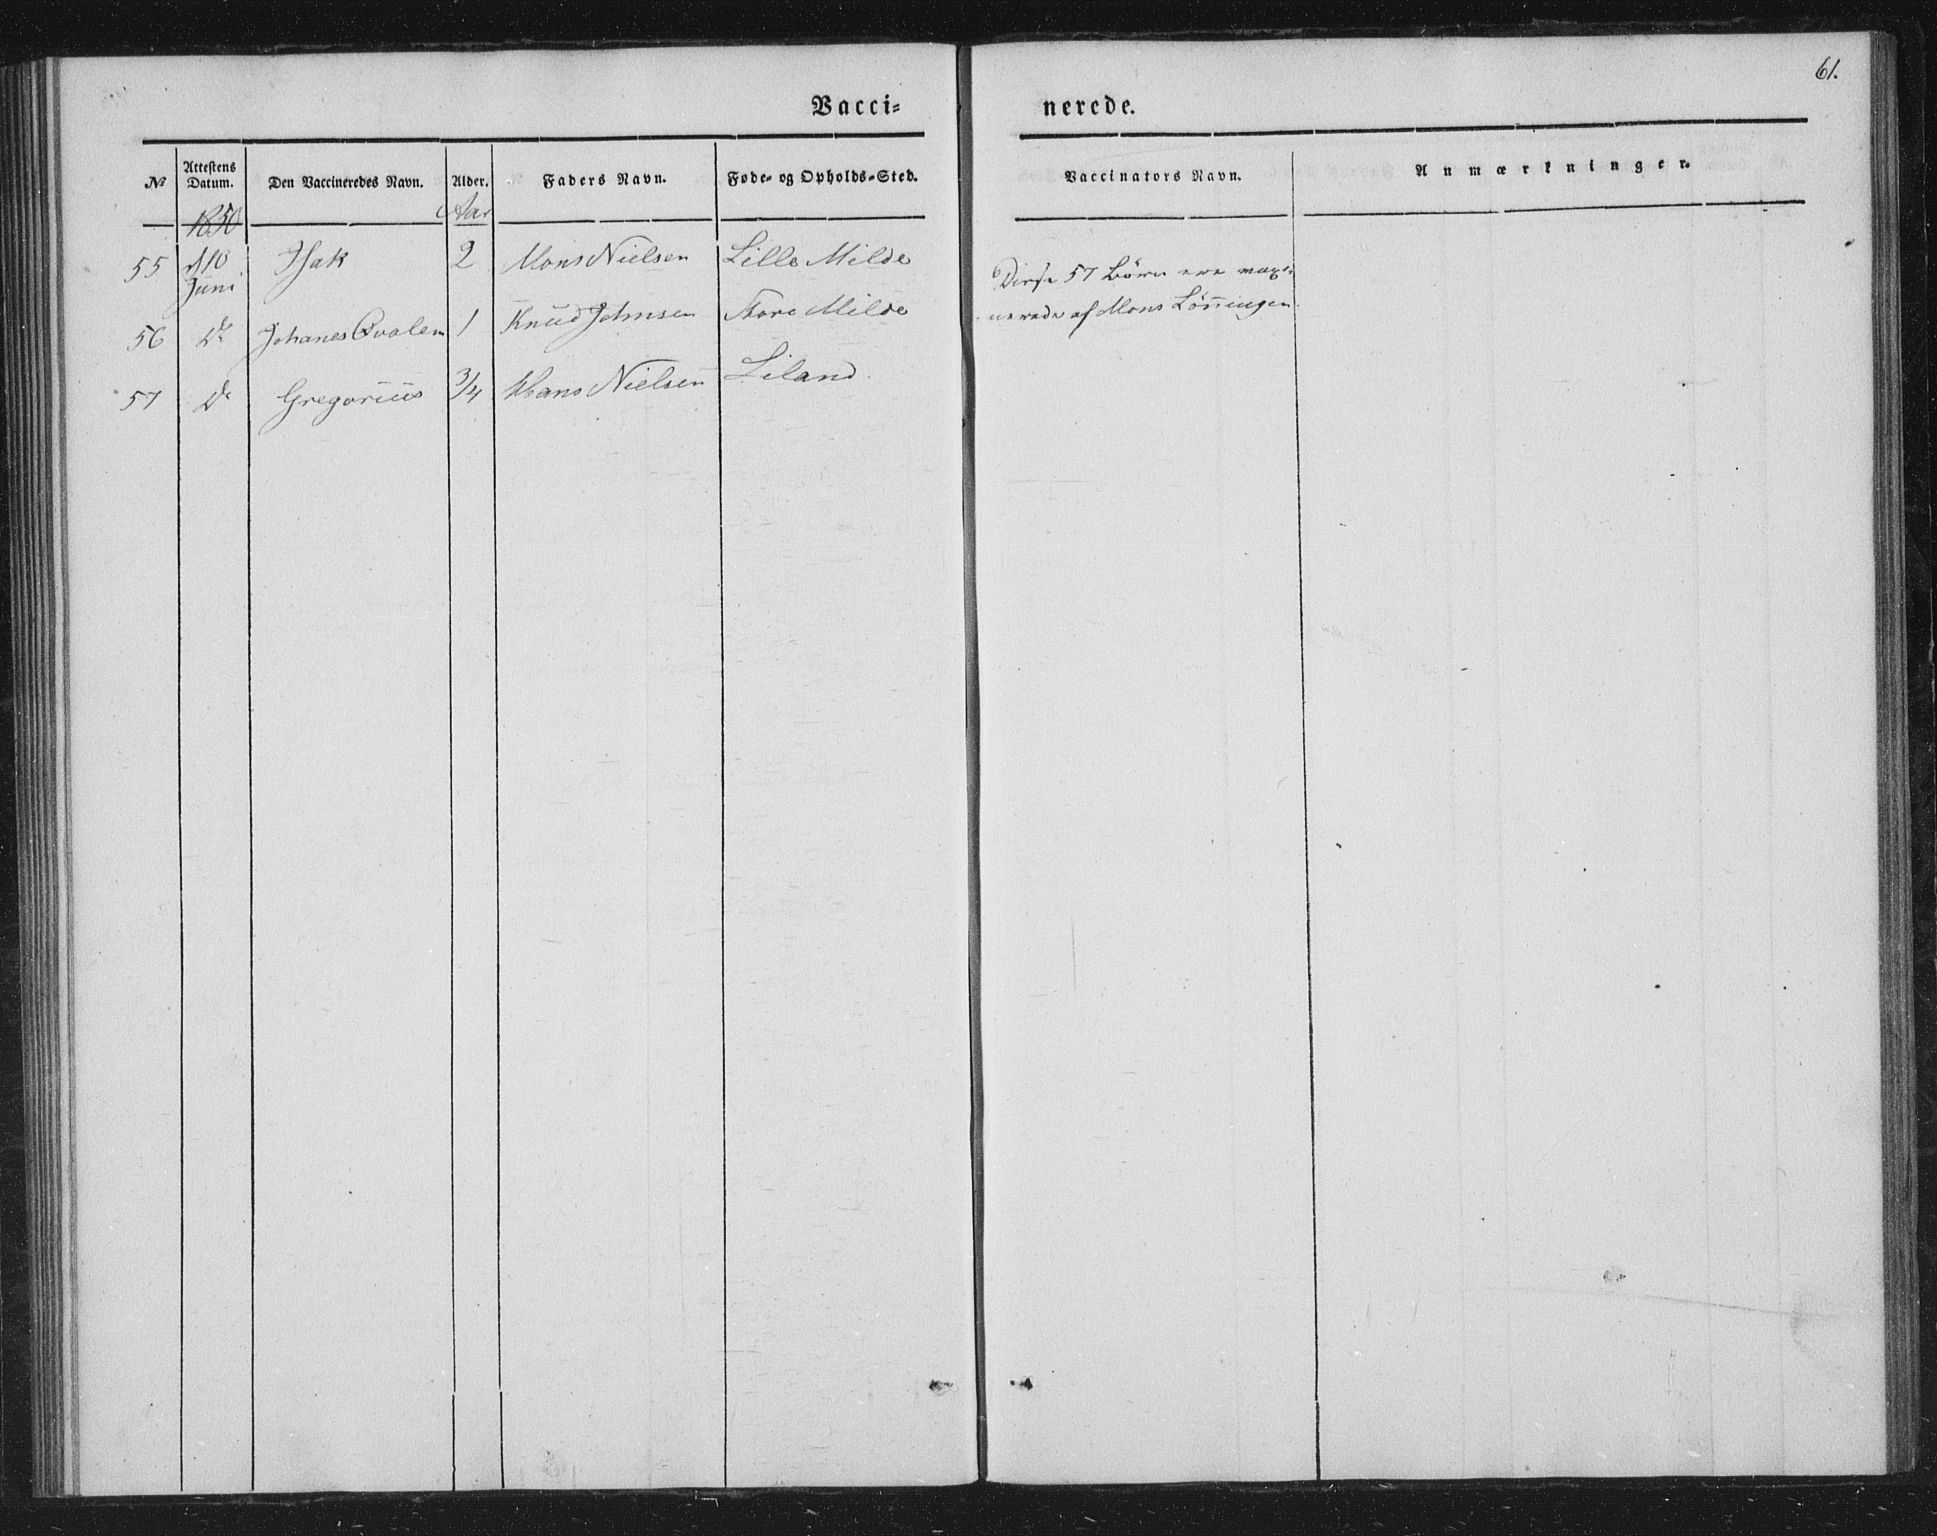 61.
Vacci= nerede.
No Attestens Datum. Den Vaccineredes Navn. Alder. Faders Navn. Føde- og Opholds-Sted. Vaccinators Navn. Anmærkninger.
1850 Aar
55 d 10 Juni Isak 2 Mons Nielsen Lille Milde
56 Do Johanes Qvalem 1 Knud Johnsen Store Milde
57 Do Gregorius 3/4 Hans Nielsen Liland
Disse 57 Børn ere vaxi-
nerede af Mons Lönningen.